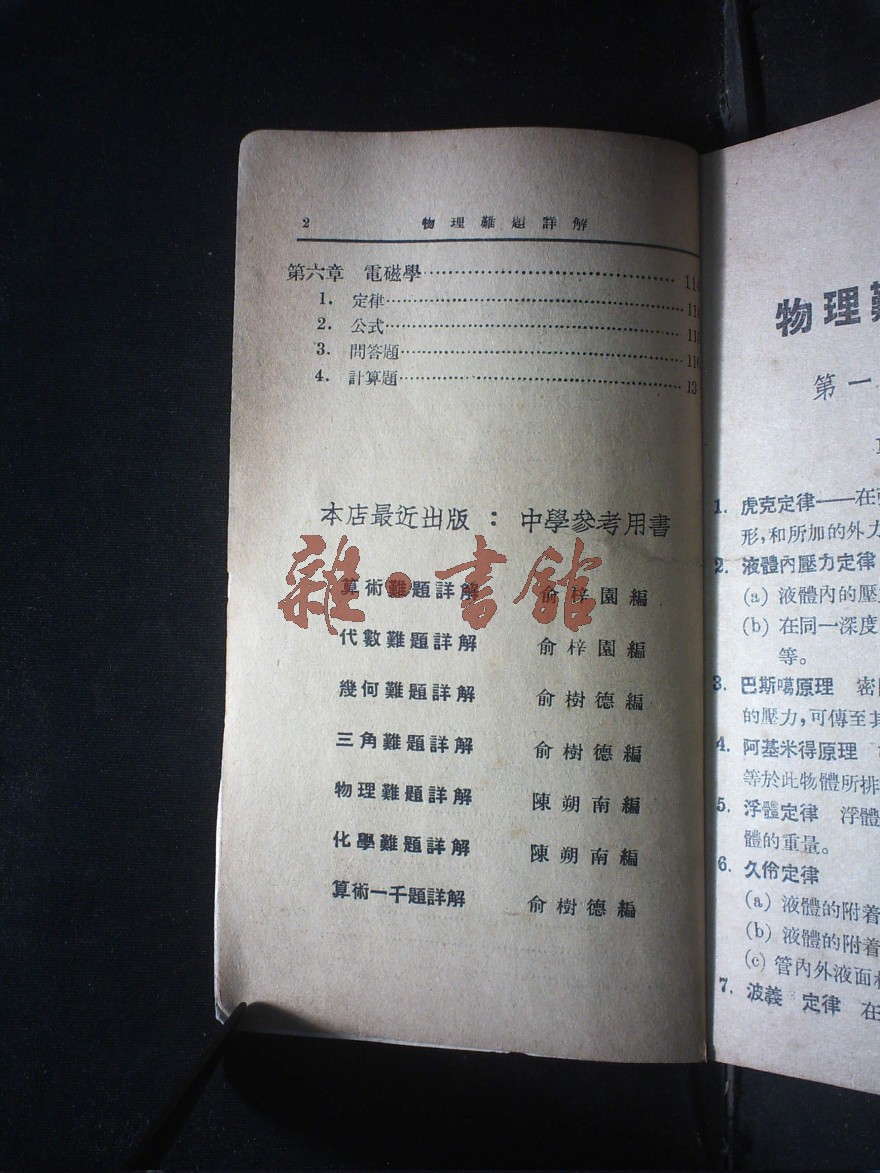 2 物理難題詳解
第六章 電磁學
1. 定律
2. 公式
3. 問答題
4. 計算題
本店最近出版：中學參考用書
算術難題詳解 俞梓園編
代數難題詳解 俞梓園編
幾何難題詳解 俞樹德編
三角難題詳解 俞樹德編
物理難題詳解 陳朔南編
化學難題詳解 陳朔南編
算術一千題詳解 俞樹德編
雜·書館
物理難
第一
1. 虎克定律——在
形,和所加的外力
2. 液體內壓力定律
(a) 液體內的壓
(b) 在同一深度
等。
3. 巴斯噶原理 密
的壓力,可傳至其
4. 阿基米得原理
等於此物體所排
5. 浮體定律 浮體
體的重量。
6. 久伶定律
(a) 液體的附着
(b) 液體的附着
(c) 管內外液面
7. 波義 定律 在